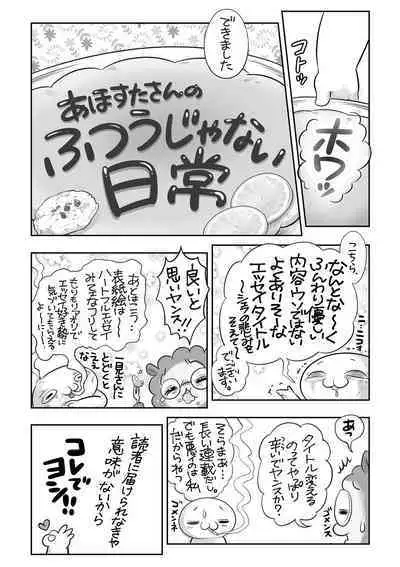 コトッ
ホワッ
できました
あほすたさんの
ふつうじゃない
日常
こちら
なんとな〜く
ふんわり優しい
内容ウンではな
よくありそーな
エッセイタイトル
〜シェフの悲哀を
そえて〜
でございます。
ニコニコ
良いと
思いヤンス!!
あとほら…
表紙絵は
ハートフルエッセイ
みてえなフリして
もりもりアオリで
エッセイ好き勢に
気づいてもらえる
よーに…
一見さんに
とどくと
ええなぁ
あっ
タイトル変える
のってやっぱり
辛いでヤンスか?
ゴメンス
そらまあ…
長い連載だし。
でも悪いのは私
だからねっ
ゴメンネ
読者に届けられなきゃ
意味がないから
コレで
ヨシ!!